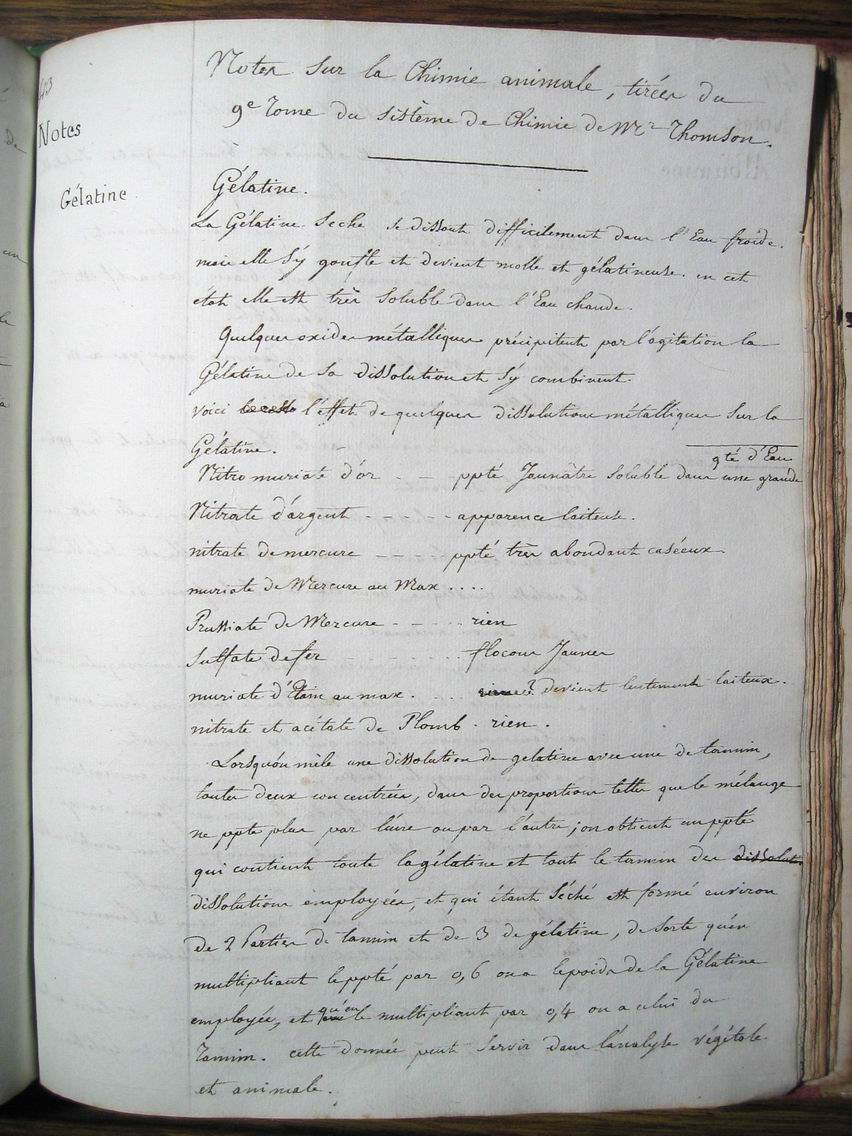 43
Notes
Gélatine
Notes sur la Chimie animale, tirées du
9e Tome du Sistème de Chimie de Mr Thomson.
Gélatine.
La Gélatine Seche se dissout difficilement dans l'Eau froide.
mais elle S'y gonfle et devient molle et gélatineuse. en cet
état elle est très Soluble dans l'Eau chaude.
Quelques oxides métalliques précipitent par l'agitation la
Gélatine de Sa dissolution et S'y combinent.
Voici l'effet de quelques dissolutions métalliques Sur la
Gélatine.
Nitro muriate d'or - - ppté Jaunâtre Soluble dans une grande
qté d'Eau
Nitrate d'argent - - - - apparence laiteuse.
nitrate de mercure - - - ppté très abondant caséeux.
muriate de Mercure au Max ....
Prussiate de Mercure - - .. rien
Sulfate de fer - - - - flocons Jaunes
muriate d'Etain au max. ... devient lentement laiteux.
nitrate et acétate de Plomb . rien.
Lorsqu'on mêle une dissolution de gelatine avec une de tannin,
toutes deux concentrées, dans des proportions telles que le mélange
ne ppte plus par l'une ou par l'autre ; on obtient un ppté
qui contient toute la gélatine et tout le tannin des dissolutions
dissolutions employées, et qui étant Séché est formé environ
de 2 Parties de tannin et de 3 de gélatine, de Sorte qu'en
multipliant le ppté par 0,6 on a le poids de la Gélatine
employée, et qu'en le multipliant par 0,4 on a celui du
Tannin. cette donnée peut Servir dans l'analyse végétale
et animale.